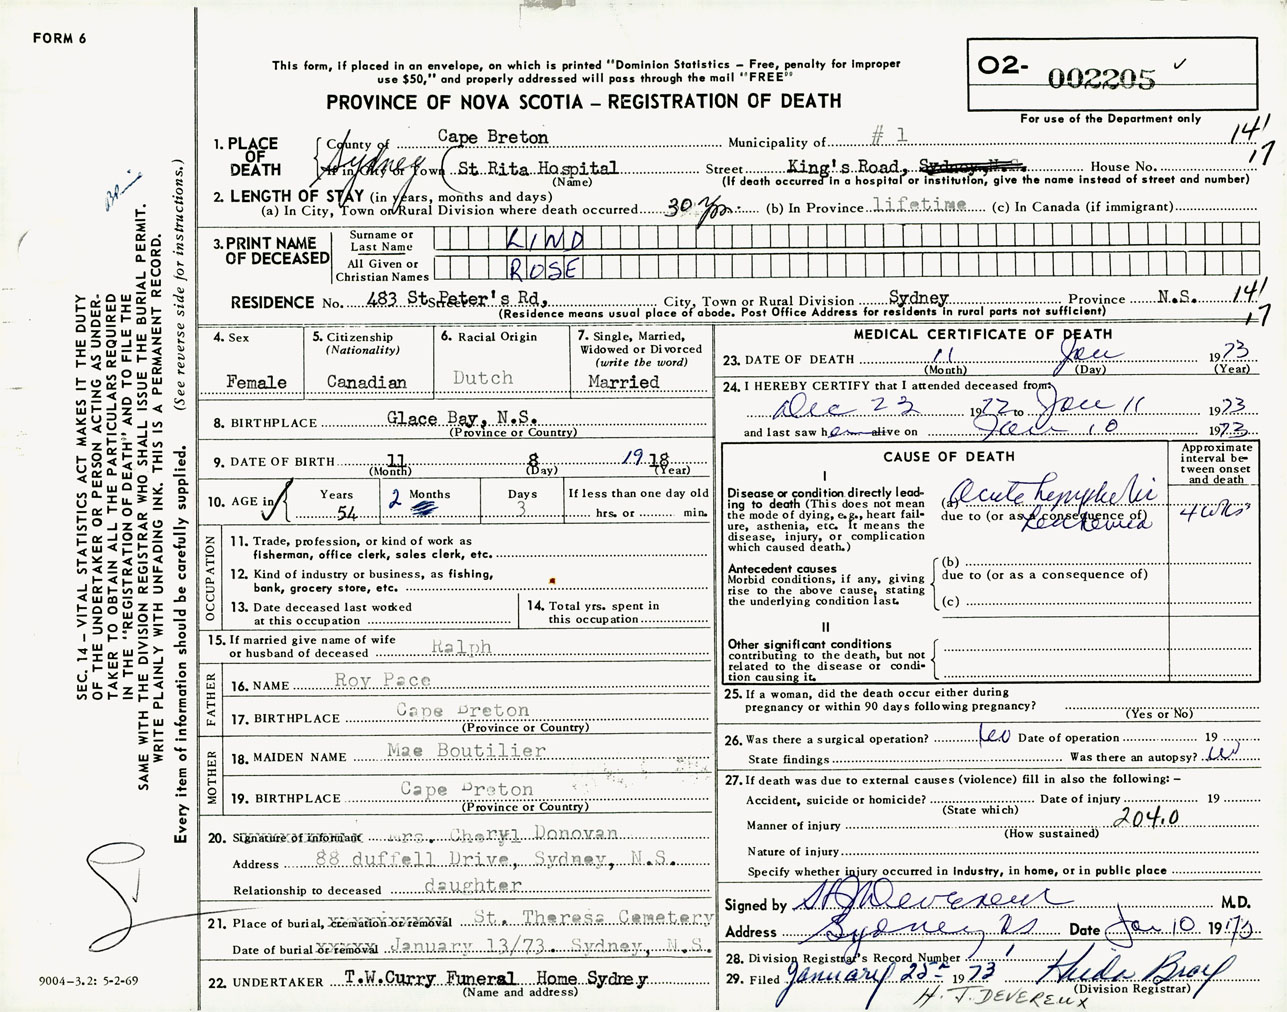 FORM 6
This form, if placed in an envelope, on which is printed "Dominion Statistics – Free, penalty for improper
use $50," and properly addressed will pass through the mail "FREE"
PROVINCE OF NOVA SCOTIA – REGISTRATION OF DEATH
O2- 002205 ✓
For use of the Department only
1. PLACE OF DEATH
County of Cape Breton Municipality of #1
141
17
Sydney
If in City or Town St Rita Hospital Street King's Road, Sydney, N.S. House No.
(Name) (If death occurred in a hospital or institution, give the name instead of street and number)
2. LENGTH OF STAY (in years, months and days)
(a) In City, Town or Rural Division where death occurred 30 yrs. (b) In Province lifetime (c) In Canada (if immigrant)
3. PRINT NAME OF DECEASED
Surname or Last Name LIND
All Given or Christian Names ROSE
RESIDENCE No. 483 St Peter's Rd, Street City, Town or Rural Division Sydney Province N.S. 141
(Residence means usual place of abode. Post Office Address for residents in rural parts not sufficient) 17
4. Sex
Female
5. Citizenship
(Nationality)
Canadian
6. Racial Origin
Dutch
7. Single, Married,
Widowed or Divorced
(write the word)
Married
8. BIRTHPLACE Glace Bay, N.S.
(Province or Country)
9. DATE OF BIRTH 11 8 1918
(Month) (Day) (Year)
10. AGE in
Years 54
2 Months
Days 3
If less than one day old
hrs. or min.
OCCUPATION
11. Trade, profession, or kind of work as
fisherman, office clerk, sales clerk, etc.
12. Kind of industry or business, as fishing,
bank, grocery store, etc.
13. Date deceased last worked
at this occupation
14. Total yrs. spent in
this occupation
15. If married give name of wife
or husband of deceased Ralph
FATHER
16. NAME Roy Pace
17. BIRTHPLACE Cape Breton
(Province or Country)
MOTHER
18. MAIDEN NAME Mae Boutilier
19. BIRTHPLACE Cape Breton
(Province or Country)
20. Signature of informant Mrs. Cheryl Donovan
Address 88 duffell Drive, Sydney, N.S.
Relationship to deceased daughter
21. Place of burial, cremation or removal St. Theresa Cemetery
Date of burial or removal January 13/73. Sydney, N.S.
22. UNDERTAKER T.W.Curry Funeral Home Sydney
(Name and address)
MEDICAL CERTIFICATE OF DEATH
23. DATE OF DEATH 11 Jan 1973
(Month) (Day) (Year)
24. I HEREBY CERTIFY that I attended deceased from:
Dec 23 1972 to Jan 11 1973
and last saw her alive on Jan 10 1973
CAUSE OF DEATH
Approximate
interval be
tween onset
and death
I
Disease or condition directly lead-
ing to death (This does not
mean the mode of dying, e.g., heart fail-
ure, asthenia, etc. It means the
disease, injury, or complication
which caused death.)
(a) Acute lymphatic
due to (or as a consequence of)
Leukemia
4 wks
Antecedent causes
Morbid conditions, if any, giving
rise to the above cause, stating
the underlying condition last.
(b)
due to (or as a consequence of)
(c)
II
Other significant conditions
contributing to the death, but not
related to the disease or condi-
tion causing it.
25. If a woman, did the death occur either during
pregnancy or within 90 days following pregnancy?
(Yes or No)
26. Was there a surgical operation? no Date of operation 19
State findings Was there an autopsy? no
27. If death was due to external causes (violence) fill in also the following: –
Accident, suicide or homicide? Date of injury 19
(State which)
Manner of injury 204.0
(How sustained)
Nature of injury
Specify whether injury occurred in industry, in home, or in public place
Signed by H J Devereux M.D.
Address Sydney, NS Date Jan 10 1973
28. Division Registrar's Record Number 1
29. Filed January 25th 1973
(Division Registrar)
H. J. DEVEREUX
SEC. 14 – VITAL STATISTICS ACT MAKES IT THE DUTY
OF THE UNDERTAKER OR PERSON ACTING AS UNDER-
TAKER TO OBTAIN ALL THE PARTICULARS REQUIRED
IN THE "REGISTRATION OF DEATH" AND TO FILE THE
SAME WITH THE DIVISION REGISTRAR WHO SHALL ISSUE THE BURIAL PERMIT.
WRITE PLAINLY WITH UNFADING INK. THIS IS A PERMANENT RECORD.
Every item of information should be carefully supplied. (See reverse side for instructions.)
9004–3.2: 5-2-69